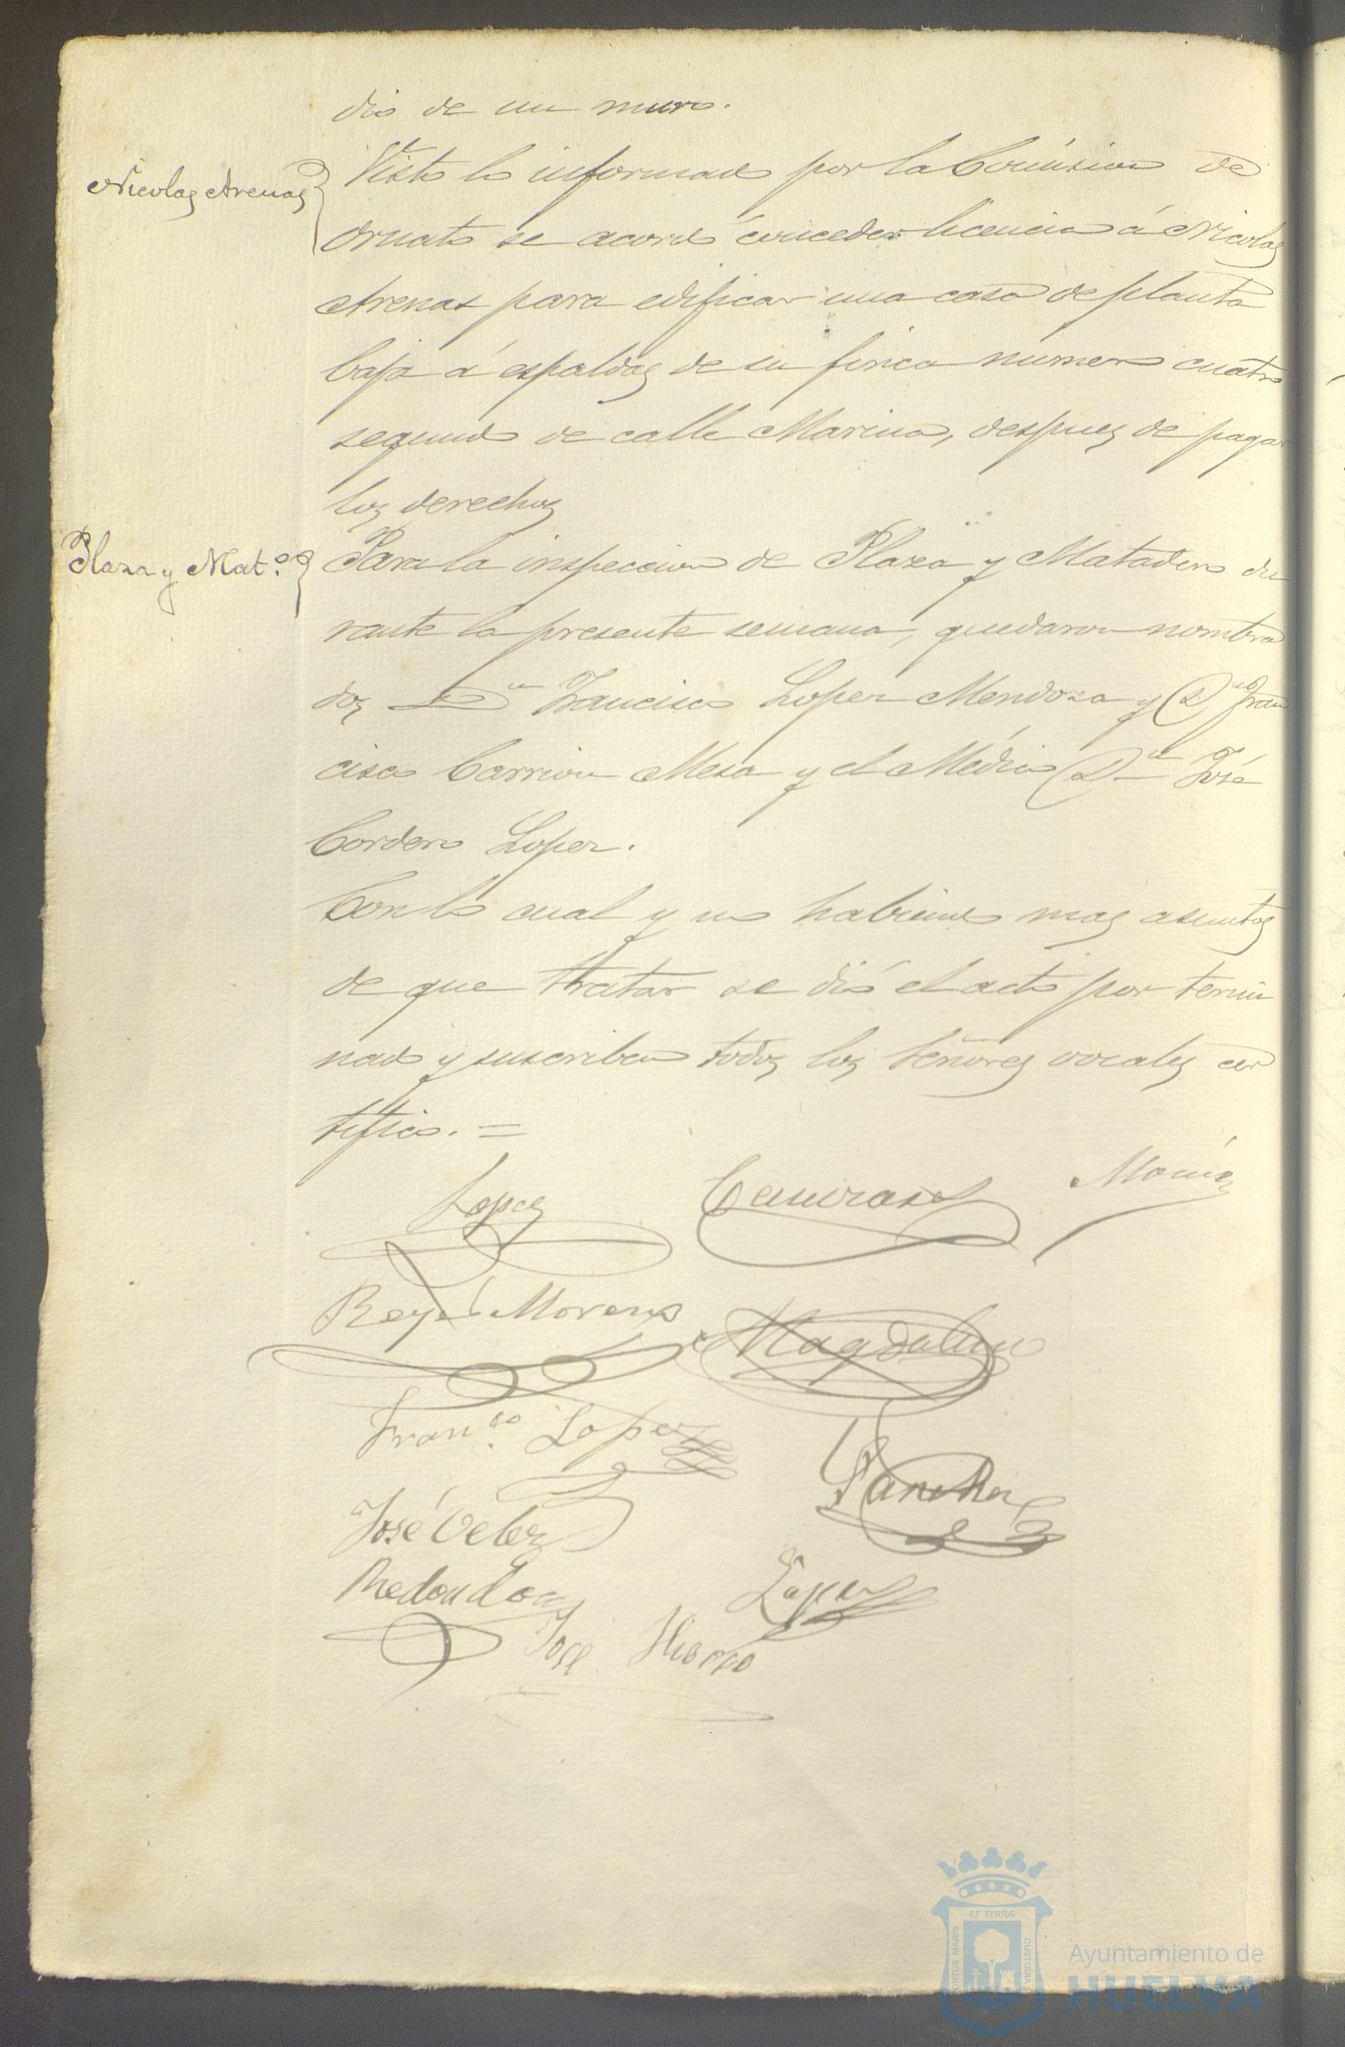 dio de un muro.
Nicolas Arenas
Visto lo informado por la Comision de
ornato se acordó conceder licencia á Nicolas
Arenas para edificar una casa de planta
baja á espaldas de su finca numero cuatro
segundo de calle Marina, despues de pagar
los derechos
Plaza y Mat.º
Para la inspeccion de Plaza y Matadero du
rante la presente semana, quedaron nombra
dos Dn Francisco Lopez Mendoza y Dn Fran
cisco Carrion Mesa y el Médico Dn José
Cordero Lopez.
Con lo cual y no habiendo mas asuntos
de que tratar se dió el acto por termi
nado y suscriben todos los Señores vocales cer
tifico. =
Lopez
Moreno
Magdalena
Fran.co Lopez
Sanchez
José Velez
Redondo
Lopez
José
ET TERRÆ
PORTUS MARIS
CUSTODIA
Ayuntamiento de
HUELVA